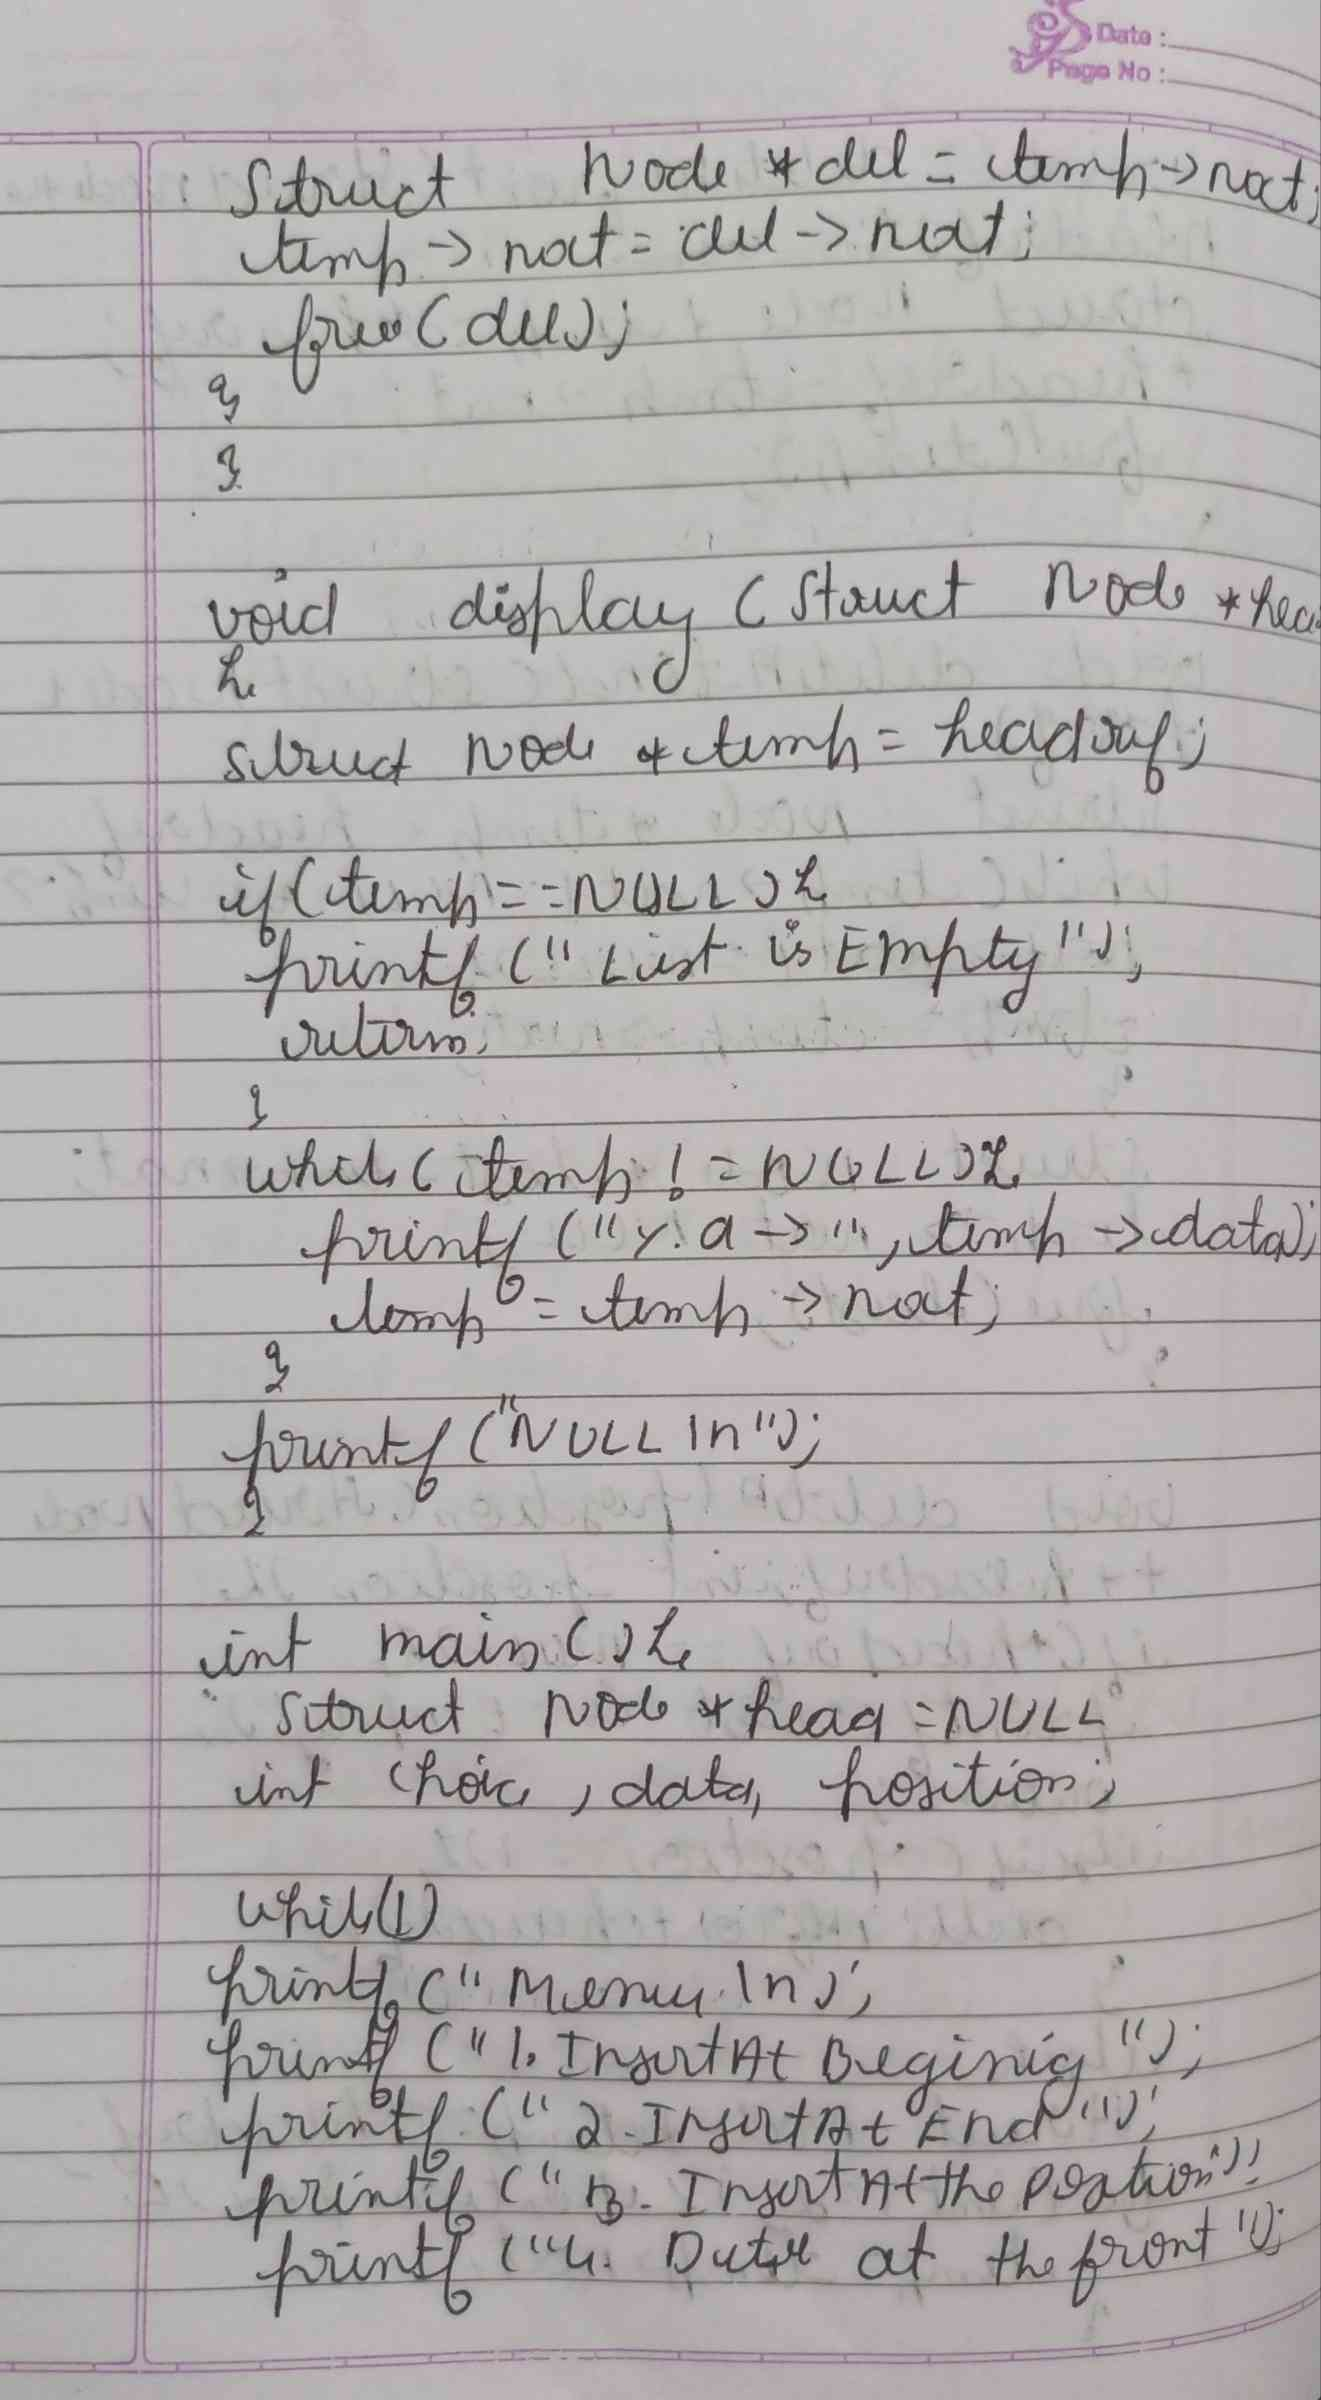 Date :
Page No :
Struct Node *del = temp->next;
temp -> next = del -> next;
free(del);
}
}
void display (Struct Node *hea
{
struct Node *temp = headref;
if(temp==NULL){
printf (" List is Empty");
return;
}
while(temp != NULL){
printf ("%d -> ", temp -> data);
temp = temp -> next;
}
printf ("NULL \n");
}
int main(){
Struct Node *head = NULL
int choice, data, position;
while(1)
printf (" Menu \n);
printf ("1. InsertAt Begining ");
printf (" 2. InsertAt End ");
printf (" 3. InsertAt the Position");
printf ("4. Delete at the front ");